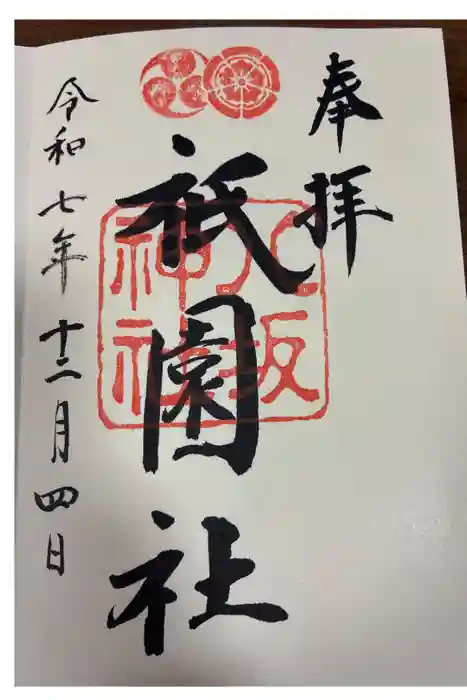 奉拝
八坂
神社
祇園社
令和七年十二月四日